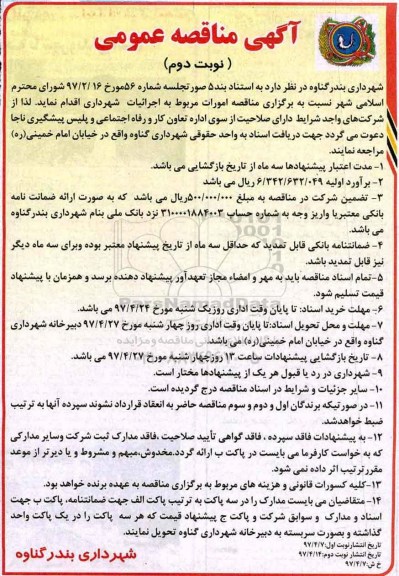 آگهی مناقصه عمومی
( نوبت دوم)
شهرداری بندر گناوه در نظر دارد به استناد بند۵ صورتجلسه شماره ۵۶مورخ ۹۷/۲/۱۶ شورای محترم
اسلامی شهر نسبت به برگزاری مناقصه امورات مربوط به اجرائیات شهرداری اقدام نماید. لذا از
شرکت‌های واجد شرایط دارای صلاحیت از سوی اداره تعاون کار و رفاه اجتماعی و پلیس پیشگیری ناجا
دعوت می گردد جهت دریافت اسناد به واحد حقوقی شهرداری گناوه واقع در خیابان امام خمینی(ره)
مراجعه نمایند.
۱- مدت اعتبار پیشنهادها سه ماه از تاریخ بازگشایی می باشد.
۲- برآورد اولیه ۶/۳۴۲/۶۳۲/۰۴۹ ریال می باشد
۳- تضمین شرکت در مناقصه به مبلغ ۵۰۰/۰۰۰/۰۰۰ریال می باشد که به صورت ارائه ضمانت نامه
بانکی معتبریا واریز وجه به شماره حساب ۳۱۰۰۰۰۱۸۸۴۰۰۳ نزد بانک ملی بنام شهرداری بندرگناوه
می باشد.
۴- ضمانتنامه بانکی قابل تمدید که حداقل سه ماه از تاریخ پیشنهاد معتبر بوده وبرای سه ماه دیگر
نیز قابل تمدید باشد.
۵-تمام اسناد مناقصه باید به مهر و امضاء مجاز تعهدآور پیشنهاد دهنده برسد و همزمان با پیشنهاد
قیمت تسلیم شود.
۶- مهلت خرید اسناد: تا پایان وقت اداری روزیک شنبه مورخ ۹۷/۴/۲۴ می باشد.
۷- مهلت و محل تحویل اسناد:تا پایان وقت اداری روز چهار شنبه مورخ ۹۷/۴/۲۷ دبیرخانه شهرداری
گناوه واقع در خیابان امام خمینی(ره) می باشد.
۸- تاریخ بازگشایی پیشنهادات ساعت ۱۳ روزچهارشنبه مورخ ۹۷/۴/۲۷ می باشد.
۹- شهرداری در رد یا قبول هر یک از پیشنهادها مختار است.
۱۰- سایر جزئیات و شرایط در اسناد مناقصه درج گردیده است.
۱۱- در صورتیکه برندگان اول و دوم و سوم مناقصه حاضر به انعقاد قرارداد نشوند سپرده آنها به ترتیب
ضبط خواهدشد.
۱۲- به پیشنهادات فاقد سپرده ، فاقد گواهی تأیید صلاحیت ،فاقد مدارک ثبت شرکت وسایر مدارکی
که به خواست کارفرما می بایست در پاکت ب ارائه گردد،مخدوش،مبهم و مشروط و یا دیرتر از موعد
مقررترتیب اثر داده نمی شود.
۱۳-کلیه کسورات قانونی و هزینه های مربوط به برگزاری مناقصه به عهده برنده خواهد بود.
۱۴- متقاضیان می بایست مدارک را در سه پاکت به ترتیب پاکت الف جهت ضمانتنامه، پاکت ب جهت
اسناد و مدارک و سوابق شرکت و پاکت ج پیشنهاد قیمت که هر سه پاکت را در یک پاکت واحد
گذاشته و بصورت سربسته به دبیرخانه شهرداری گناوه تحویل نمایند.
تاریخ انتشار نوبت اول:۹۷/۴/۷
تاریخ انتشار نوبت دوم:۹۷/۴/۱۴
خ ش:۹۷/۴/۷
شهرداری بندر گناوه